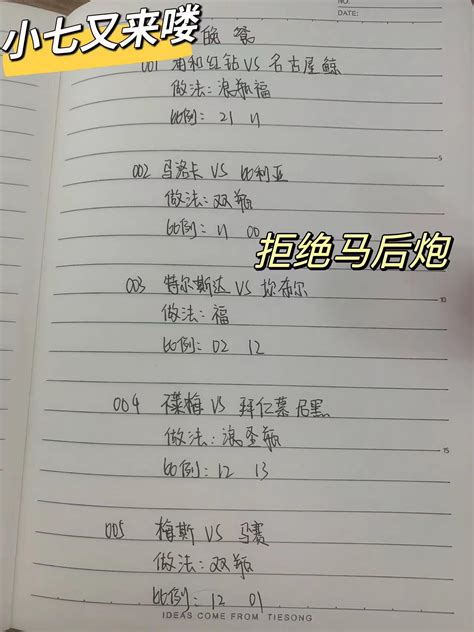 小七又来喽
NO.
DATE:
001 浦和红钻 VS 名古屋鲸
做法: 浪瓶福
比例: 21 11
002 马洛卡 VS 比利亚
做法: 双瓶
比例: 11 00
拒绝马后炮
003 特尔斯达 VS 坎布尔
做法: 福
比例: 02 12
004 VS 拜仁慕尼黑
做法: 浪圣瓶
比例: 12 13
005 梅斯 VS 马赛
做法: 双瓶
比例: 12 01
5
10
15
IDEAS COME FROM TIESONG